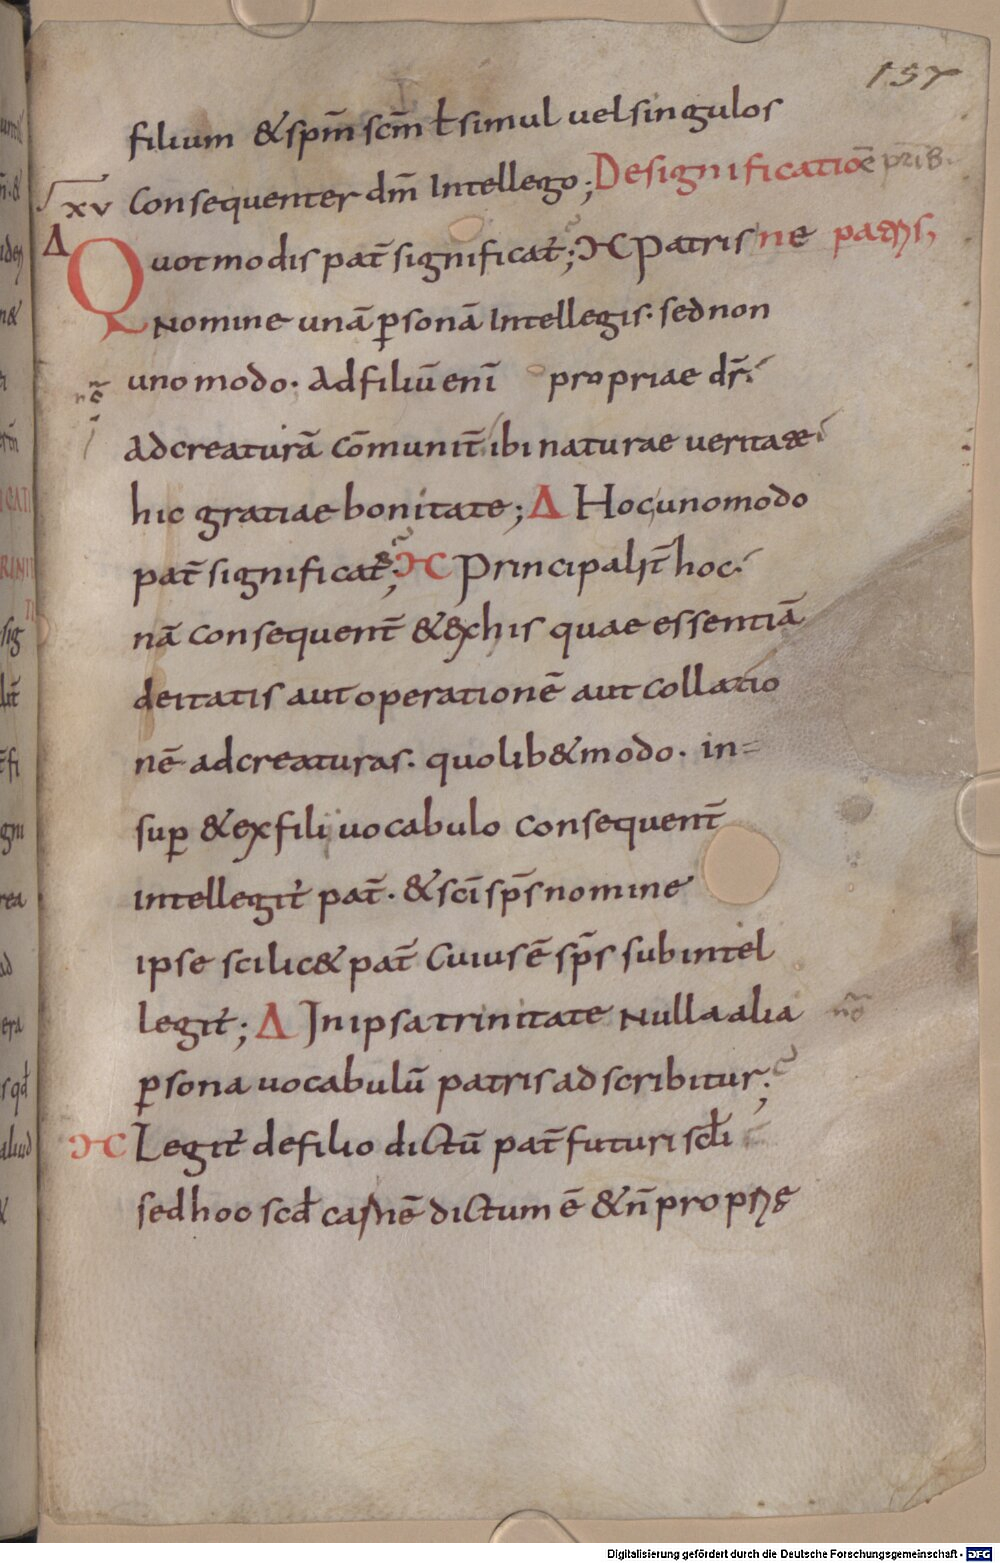 157
filium &spm̄ scm̄ ł simul uel singulos
xv consequenter dm̄ Intellego; De significatione p̄ris.
Δ Quot modis pat̄ significat̄; ϽC Patris ne pat̄ris,
Nomine unā ꝑsonā Intellegis. sed non
uno modo. Ad filiū enī propriae dr̄.
Ad creaturā cōmunit̄ ibi naturae ueritate
hic gratiae bonitate; Δ Hoc uno modo
pat̄ significat̄; ϽC Principalit̄ hoc.
nā consequent̄ & ex his quae essentiā
deitatis aut operationē aut collatio
nē ad creaturas. quolib& modo. in=
suꝑ & ex fili uocabulo consequent̄
Intellegit̄ pat̄. & sc̄i sp̄s nomine
ipse scilic& pat̄ cuius ē sp̄s sub intel
legit̄; Δ In ipsa trinitate Nulla alia
ꝑsona uocabulū patris adscribitur;
ϽC Legit̄ de filio dictū pat̄ futuri scłi
sed hoc scđ carnē dictum ē & n̄ propriae
Digitalisierung gefördert durch die Deutsche Forschungsgemeinschaft - DFG